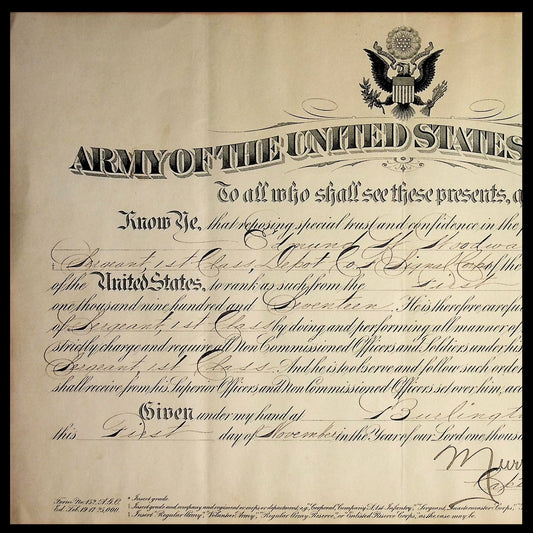 ARMY OF THE UNITED STATES
To all who shall see these presents,
Know Ye, that reposing special trust and confidence in the
Edmund H. Woodwa
Sergeant, 1st Class, Depot Co. Signal Corps of the
of the United States, to rank as such from the First
one thousand nine hundred and Seventeen. He is therefore careful
of Sergeant, 1st Class by doing and performing all manner of
strictly charge and require all Non Commissioned Officers and Soldiers under his
Sergeant, 1st Class. And he is to observe and follow such order
shall receive from his Superior Officers and Non Commissioned Officers set over him, acc
Given under my hand at Burlingt
this First day of November in the Year of our Lord one thousand
Murr
Form No. 152, A.G.O.
Ed. Feb. 19-17-25,000.
* Insert grade.
† Insert grade and company and regiment or corps or department, e.g., "Corporal, Company I, 1st Infantry," "Sergeant, Quartermaster Corps,"
‡ Insert "Regular Army," "Volunteer Army," "Regular Army Reserve," or Enlisted Reserve Corps, as the case may be.